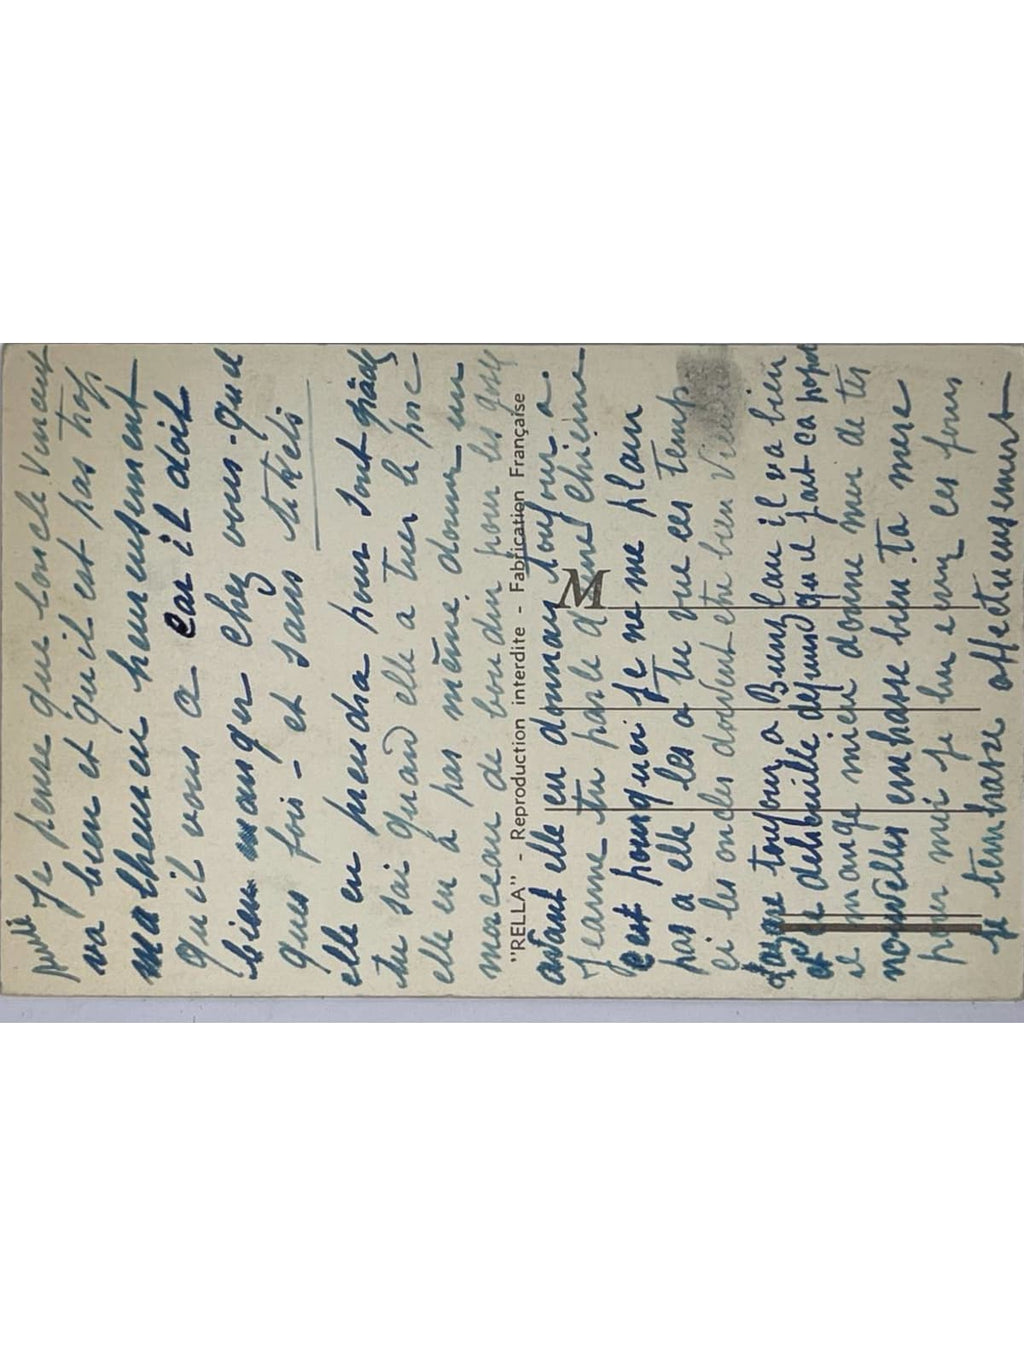 Je pense que loncle Vincent
va bien et qu'il est pas trop
malheureu heureusement
qu'il vous a car il doit
bien manger chez vous quel
ques fois - et sans tikets
elle en prendra pour sont grade
tu sai quand elle a tuer le porc
elle en a pas même donner un
morceau de boudin pour les gosse
"RELLA" - Reproduction interdite - Fabrication Française
avant elle en donnai toujour a
M
Jeanne tu parle d'une chienne
c'est pourquoi je ne me plain
pas a elle les a tu vue ces temp
ci les oncles doivent etre bien vieux
toujour a Bung lau il va bien
et de debrouille depuis qu'il fait ca popote
il mange mieu donne moi de tes
nouvelles embrasse bien ta mere
pour moi je lui ecrit ces jours
je tembrasse affectueusement